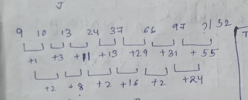 J
9 10 13 24 37 66 97 152
+1 +3 +11 +13 +29 +31 + 55
+2 +8 +2 +16 +2 +24